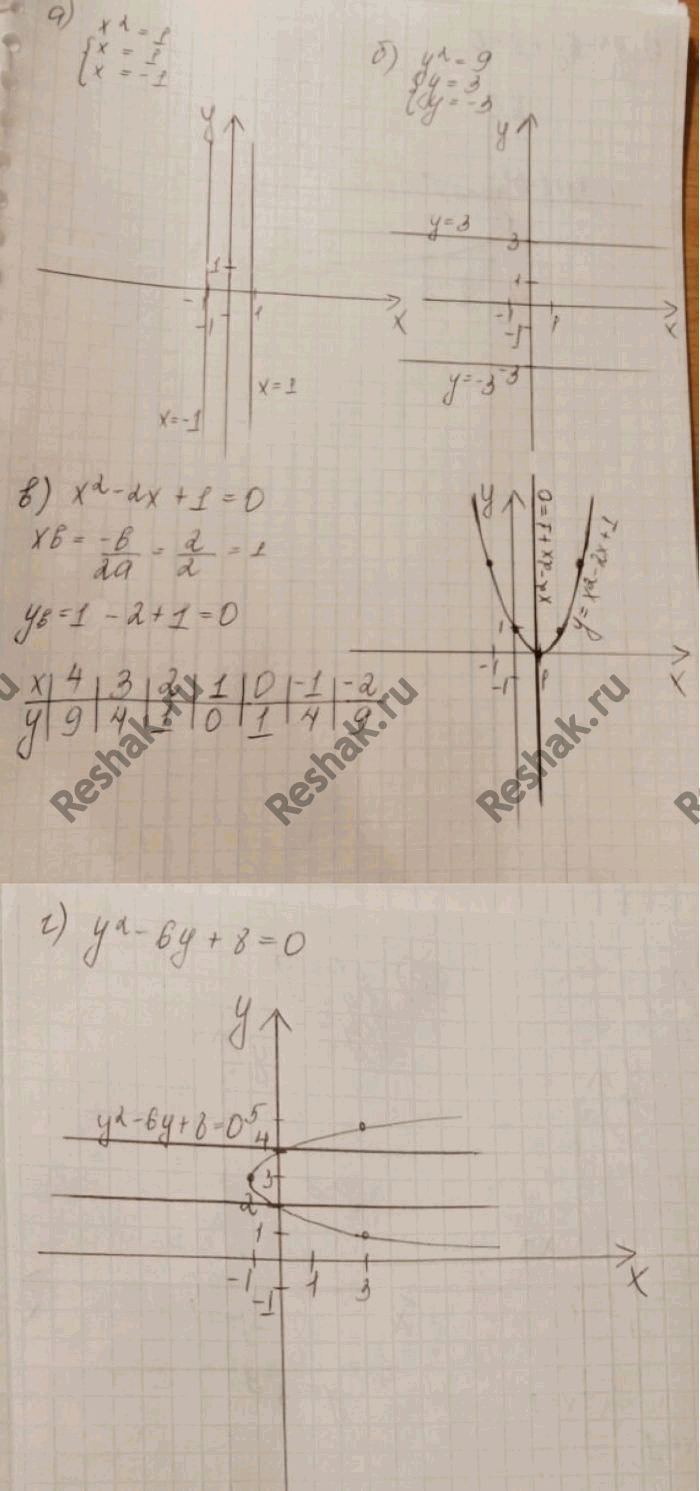 а) x² = 1
{ x = 1
x = -1
б) y² = 9
{ y = 3
y = -3
y
1
-1
-1
1
x
x=-1
x=1
y
y=3
3
1
-1
-1
1
x
y=-3
-3
в) x² - 2x + 1 = 0
xв = -в/2a = 2/2 = 1
yв = 1 - 2 + 1 = 0
x | 4 | 3 | 2 | 1 | 0 | -1 | -2
y | 9 | 4 | 1 | 0 | 1 | 4 | 9
y
x²-2x+1=0
y=x²-2x+1
1
-1
-1
1
x
Reshak.ru
Reshak.ru
Reshak.ru
г) y² - 6y + 8 = 0
y
y²-6y+8=0
5
4
3
2
1
-1
1
3
-1
x